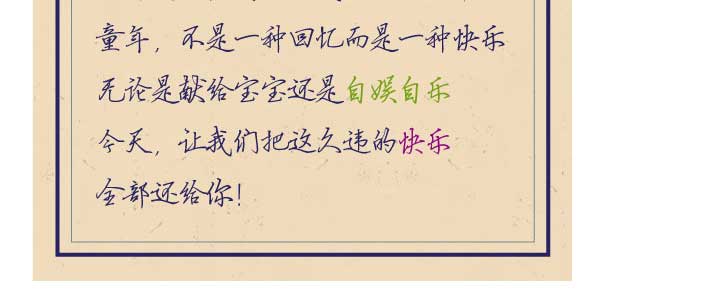 童年，不是一种回忆而是一种快乐
无论是献给宝宝还是自娱自乐
今天，让我们把这久违的快乐
全部还给你！